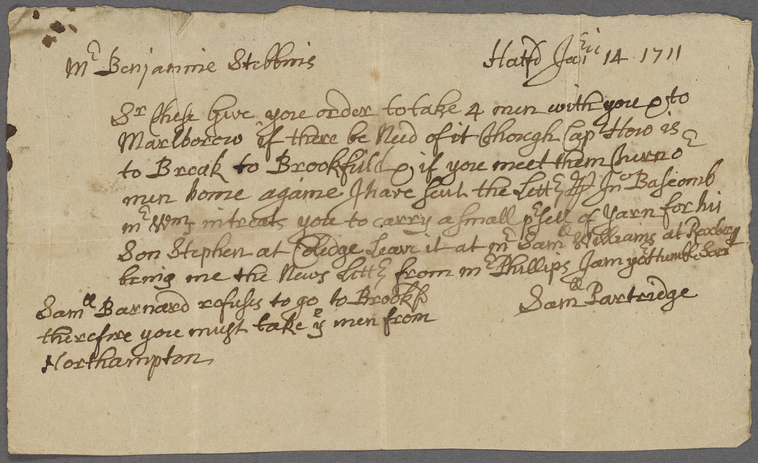 Mr Benjamine Stebbins Hatfd Janri 14 1711
Sr These Give you order to take 4 men with you & to
Marlborow if there be Need of it Though Cap How is
to Break to Brookfield & if you meet them Turn or
men home againe I have sent the Lettr Jno Bascomb
mr Wms intreats you to carry a small prsell of yarn for his
Son Stephen at Colledge Leave it at mr Samll Williams at Roxbery
bring me the News Lettr from mr Phillips I am yor Humble Servt
Samll Partridge
Samll Barnard refuses to go to Brookf
therefore you must take ye men from
Northampton